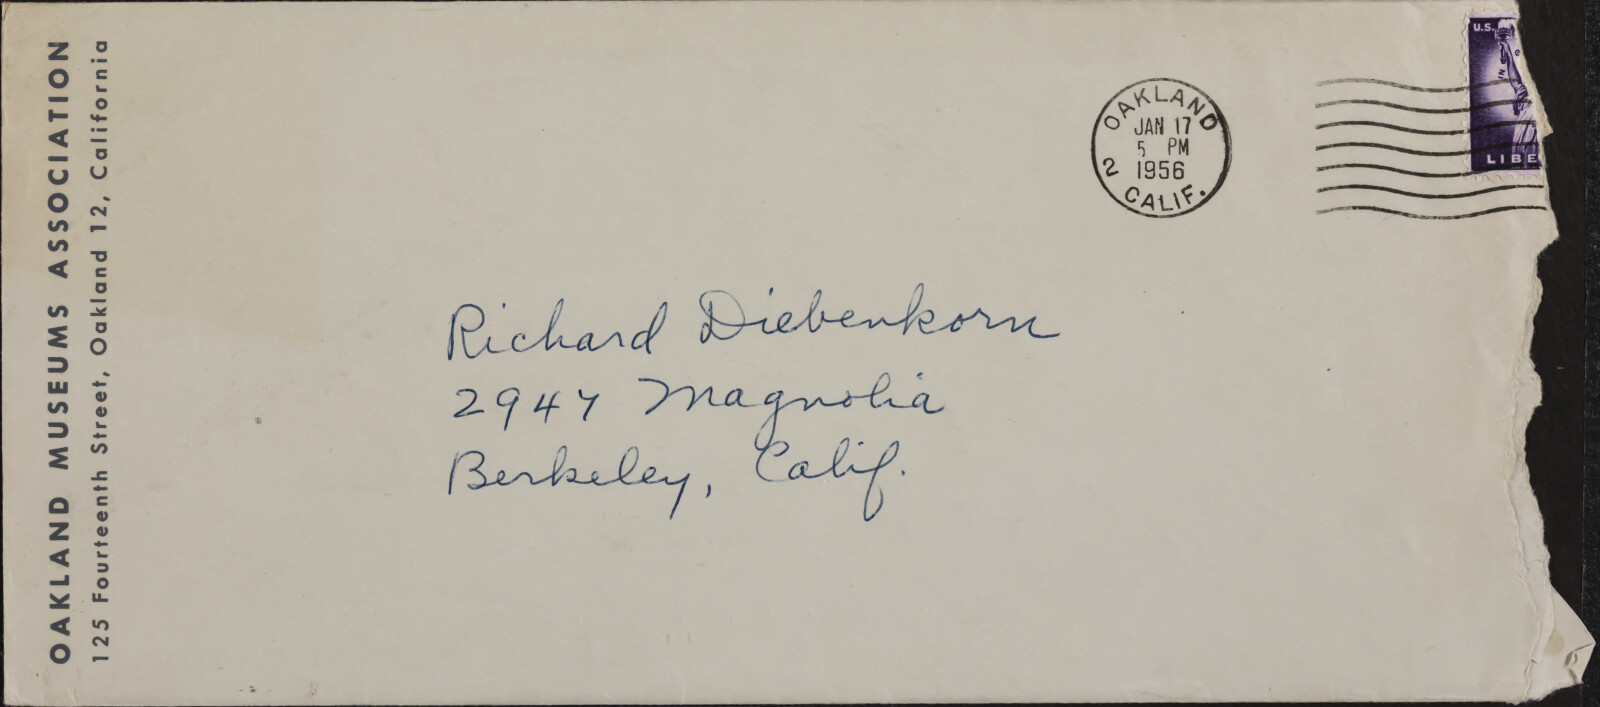 OAKLAND MUSEUMS ASSOCIATION
125 Fourteenth Street, Oakland 12, California
OAKLAND
JAN 17
5 PM
1956
2 CALIF.
U.S.
IN
LIBE
Richard Diebenkorn
2947 Magnolia
Berkeley, Calif.